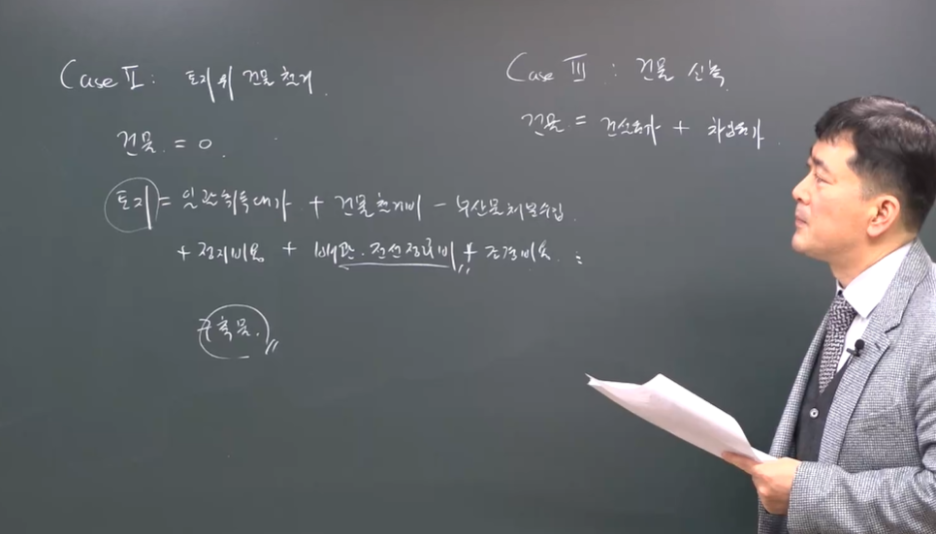 Case Ⅱ : 토지 위 건물 철거.
건물 = 0.
토지 = 일괄취득대가 + 건물철거비 - 부산물처분수입.
+ 정지비용 + 배관.전선정비비 + 조경비용 :
구축물.
Case Ⅲ : 건물 신축
건물 = 건설원가 + 차입원가.